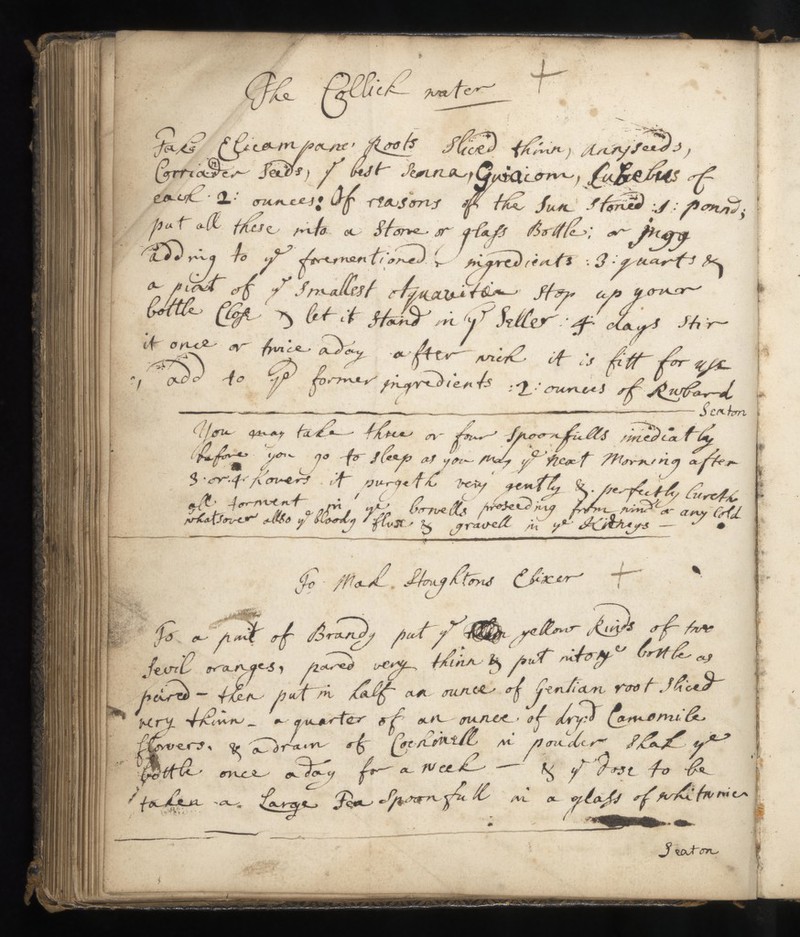 The Collick water +
Take Elicampane Roots sliced thinn, Annyseeds,
Corriander Seeds, ye best Senna, Guiacom, Cubebus of
each :2: ounces: Of reasons of the Sun stoned :1: pound;
put all these into a Stone or glass Bottle; or jugg
adding to ye forementioned ingredients :3: quarts &
a pint of ye Smallest aquavitae stop up your
bottle Close & let it stand in ye Seller :4 days stir
it once or twice a day after wich it is fitt for use
add to ye former ingredients :2: ounces of Rubard
Seaton
You may take three or four Spoonfulls imediatly
before you go to sleep as you may ye next Morning after
3 or 4 howers it purgeth very gently & perfectly Cureth
all torment in ye bowells proseeding from wind or any Cold
whatsover allso ye bloody flux & gravell in ye Kidneys —
To Mak Stoughtons Elixer +
To a pint of Brandy put ye yellow Rinds of two
Sevil oranges, pared very thinn & put into ye bottle as
pared - then put in half an ounce of Gentian root Sliced
very thinn - a quarter of an ounce of dryd Camomile
flowers. & a dram of Cochinell in pouder Shak ye
bottle once a day for a week — & ye dose to be
taken a Large Tea Spoonfull in a glass of whitwine
Seaton